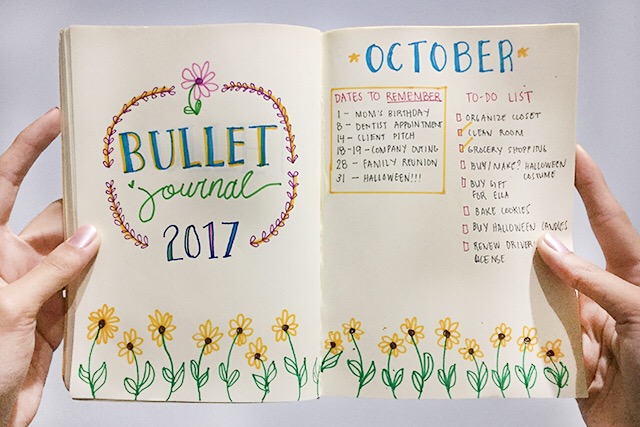 BULLET
journal
2017
OCTOBER
DATES TO REMEMBER
1 - MOM'S BIRTHDAY
8 - DENTIST APPOINTMENT
14 - CLIENT PITCH
18-19 - COMPANY OUTING
28 - FAMILY REUNION
31 - HALLOWEEN!!!
TO-DO LIST
ORGANIZE CLOSET
CLEAN ROOM
GROCERY SHOPPING
BUY/MAKE? HALLOWEEN
COSTUME
BUY GIFT
FOR ELLA
BAKE COOKIES
BUY HALLOWEEN CANDIES
RENEW DRIVER
LICENSE